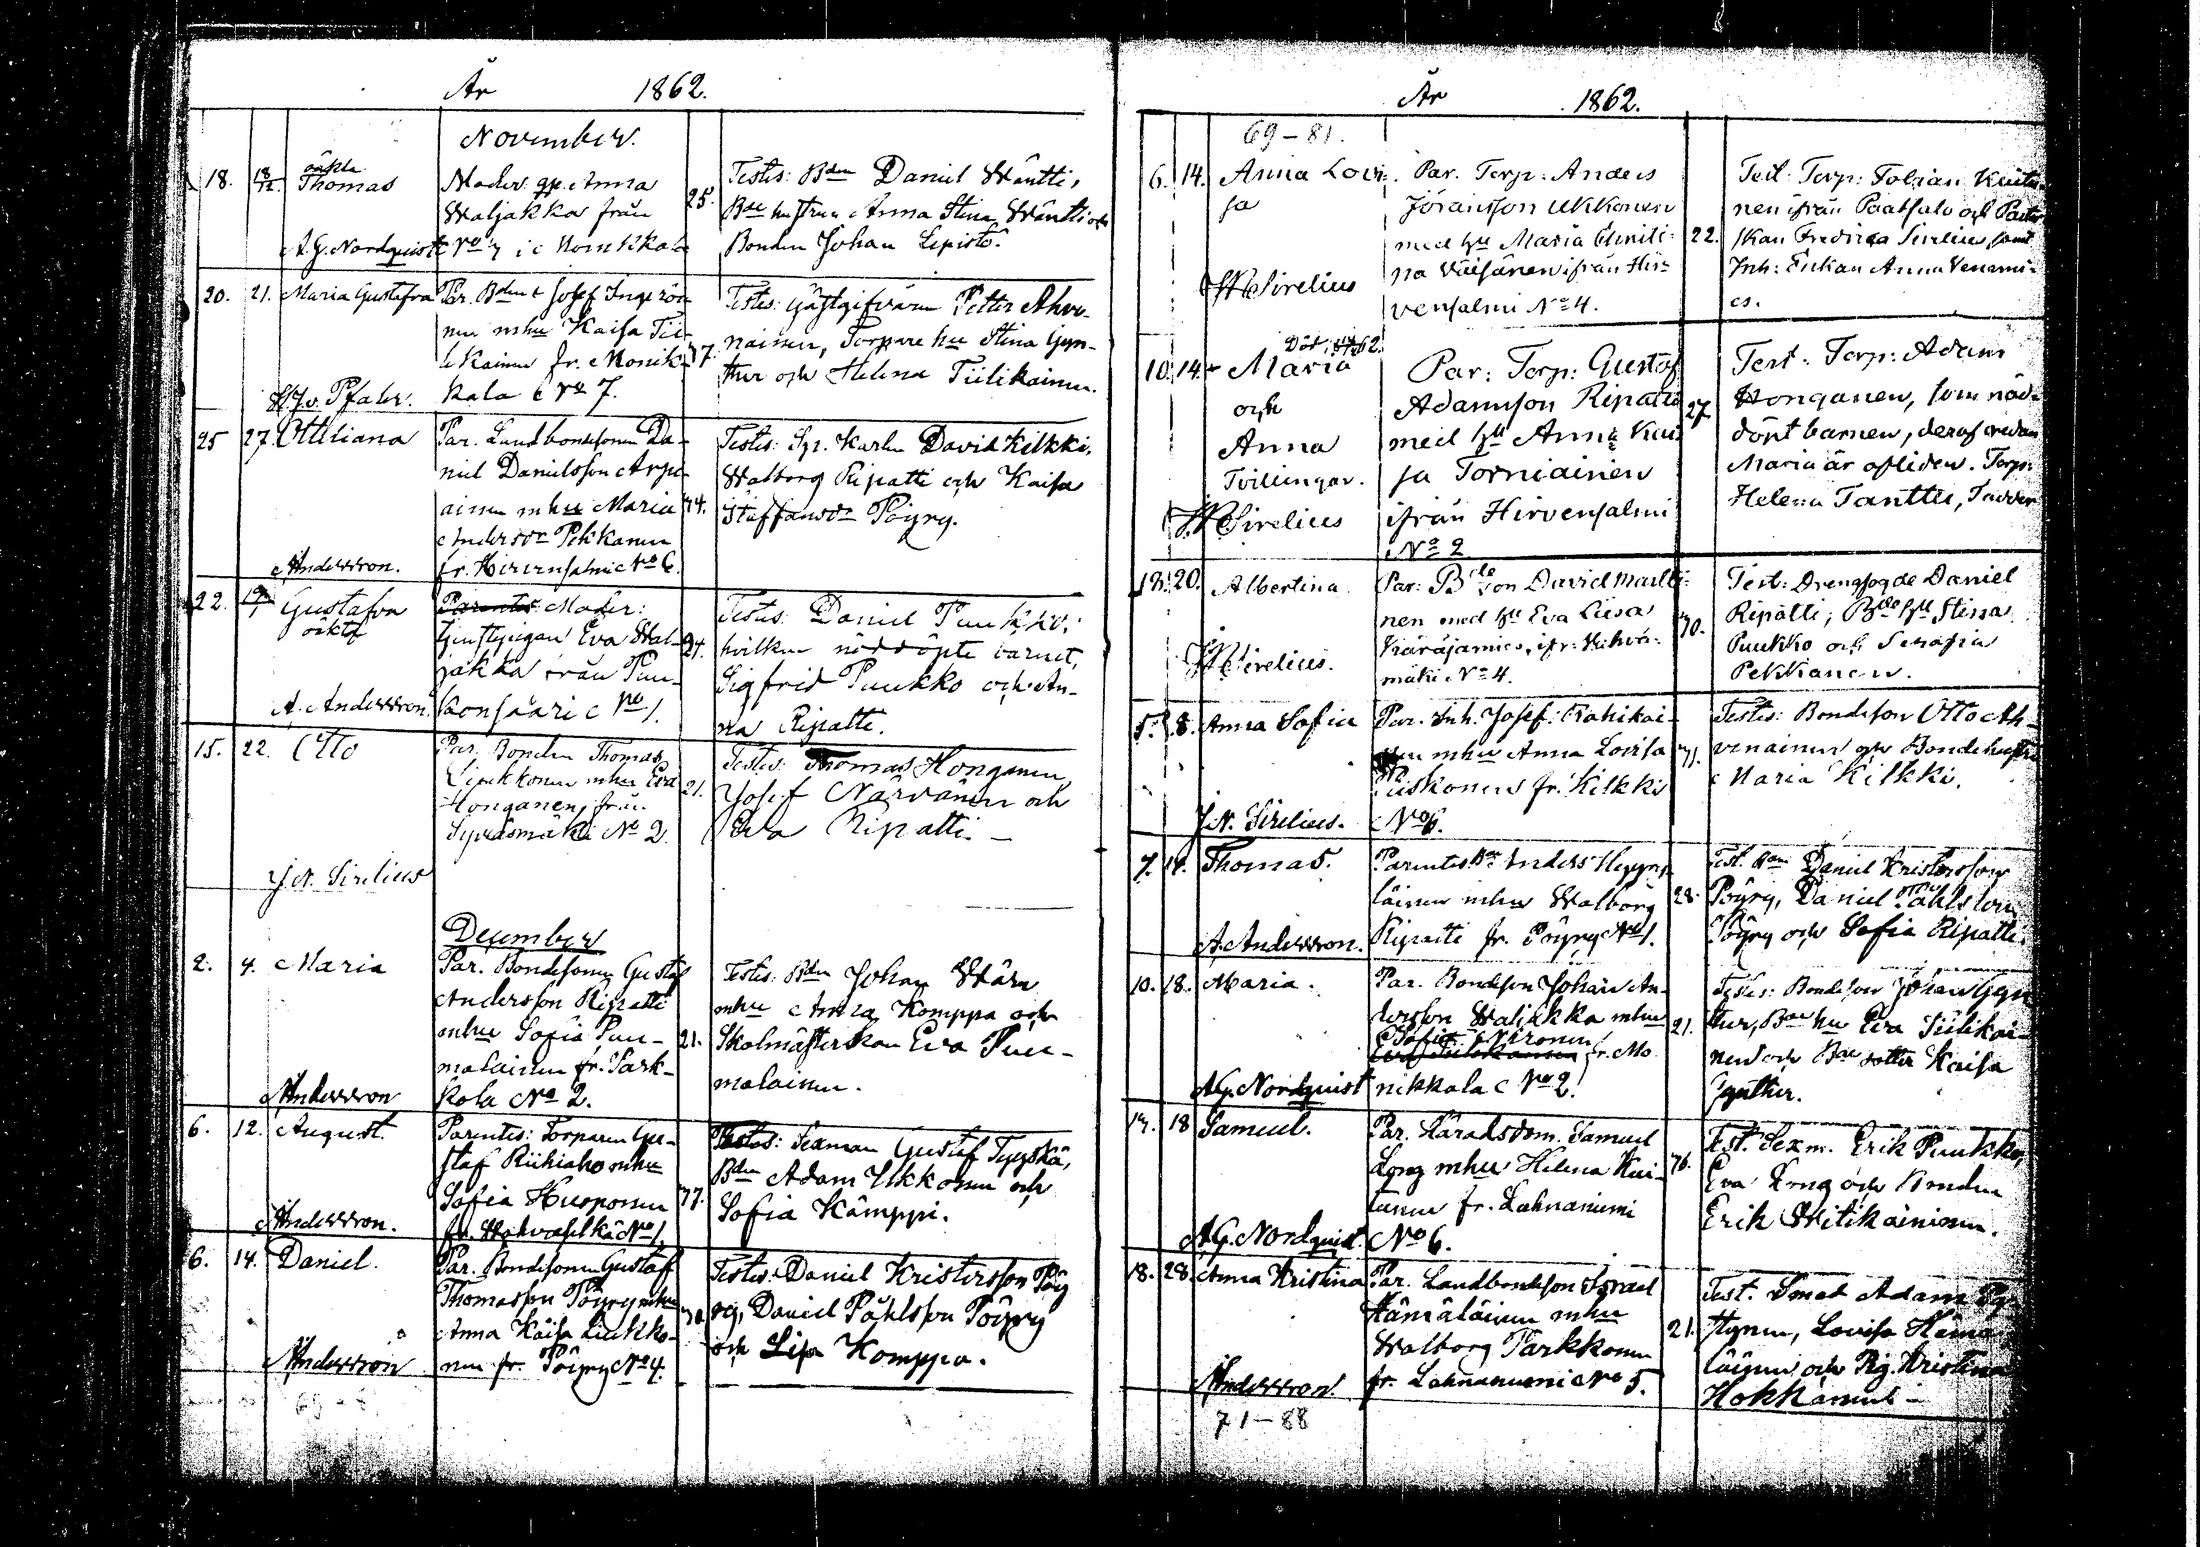 År 1862.
November.
18. 18/12. oäkta
Thomas
A. G. Nordquist
Moder: gp. Anna
Waljakka från
No 7 i Monikkala
25.
Testes: Bden Daniel Wäntti,
Bde hustrun Anna Stina Wäntti och
Bonden Johan Lepistö.
20. 21. Maria Gustafva
v. Pfaler.
Par. Bden Josef Ingeröi-
nen mhu Kaisa Tii-
likainen fr. Monik-
kala No 7.
37.
Testes: Gästgifvaren Petter Ahve-
nainen, Torpare hu Stina Gyn-
ther och Helena Tiilikainen.
25 27. Ottiliana
Andersson.
Par. Landbondesonen Da-
niel Danielsson Arpi-
ainen mhu Maria
Andersdr Pekkanen
fr. Hirvensalmi No 6.
34.
Testes: Dr. Karlen David Kilkki,
Walborg Ripatti och Kaisa
Staffansdr Pöyry.
22. Gustafva
oäkta
A. Andersson.
Parentes: Moder:
tjenstpigan Eva Wal-
jakka från Puu-
konsaari No 1.
24.
Testes: Daniel Puukko,
hvilken nöddöpte barnet,
Sigfrid Puukko och An-
na Ripatti.
15. 22. Otto
J. N. Sirelius
Par. Bonden Thomas
Liukkonen mhu Eva
Honganen, från
Syväsmäki No 2.
21.
Testes: Thomas Honganen,
Josef Närvänen och
Eva Ripatti. —
December
2. 4. Maria
Andersson
Par. Bondesonen Gustaf
Andersson Ripatti
mhu Sofia Puu-
malainen fr. Park-
kola No 2.
21.
Testes: Bden Johan Wärn
mhu Anna Komppa och
Skolmästerskan Eva Puu-
malainen.
6. 12. August.
Andersson.
Parentes: Torparen Gu-
staf Riihiaho mhu
Sofia Husponen
fr. Wahvaselkä No 1.
37.
Testes: Sexman Gustaf Tyyskä,
Bden Adam Ukkonen och
Sofia Kämppi.
6. 14. Daniel.
Andersson
Par. Bondesonen Gustaf
Thomasson Pöyry mhu
Anna Kaisa Liukko-
nen fr. Pöyry No 4.
30.
Testes: Daniel Kristersson Pöy
ry, Daniel Påhlsson Pöyry
och Lisa Komppa.
År 1862.
69 – 81.
6. 14. Anna Lovi-
sa
Sirelius
Par. Torp: Anders
Jöransson Ukkonen
med hu Maria
na Väisänen ifrån Hir-
vensalmi No 4.
22.
Test: Torp: Tobias
nen ifrån Paatsalo och Pastor
skan Fredrica Sirelius, samt
Inh: Enkan Anna Venemi-
es.
10. 14. Död 62.
Maria
och
Anna
Tvillingar.
Sirelius
Par: Torp: Gustaf
Adamsson Ripatti
med hu Anna Kai
sa Torniainen
ifrån Hirvensalmi
No 2
27.
Test: Torp: Adam
Honganen, som nöd-
döpt barnen, deraf redan
Maria är afliden. Torp:
Helena Tanttu,
13. 20. Albertina
Sirelius.
Par: Bde son David Martti-
nen med hu Eva Liisa
Käräjämies, ifr: Kihvä-
mäki No 4.
30.
Test: Drengfogde Daniel
Ripatti, Bde hu Stina
Puukko och Serafia
Pekkanen.
5. 8. Anna Sofia
J. N. Sirelius.
Par. Inh. Josef: Rahikai-
nen mhu Anna Lovisa
Piiskonen fr. Kilkki
No 6.
31.
Testes: Bondeson Otto Ah-
venainen och Bondehustru
Maria Kilkki.
7. 14. Thomas.
A. Andersson.
Parentes Bde Anders Heyyny-
läinen mhu Walborg
Ripatti fr. Pöyry No 1.
28.
Test. Bden Daniel Kristersson
Pöyry, Daniel Påhlsson
Pöyry och Sofia Ripatti.
10. 18. Maria.
A. G. Nordquist
Par. Bondeson Johan An-
dersson Waljakka mhu
Sofia
fr. Mo
nikkala No 2.
21.
Testes: Bondeson Johan Gyn
ther, Bde hu Eva Tiilikai-
nen och Bde dotter Kaisa
Gynther.
14. 18 Samuel.
A. G. Nordquist.
Par. Häradsdom. Samuel
Long mhu Helena Kui-
tunen fr. Lahnaniemi
No 6.
36.
Test. Sexm. Erik Puukko,
Eva Long och Bonden
Erik Witikaininen.
18. 28. Anna Kristina
Andersson.
Par. Landbondeson Israel
Hämäläinen mhu
Walborg Parkkonen
fr. Lahnaniemi No 5.
21.
Test. Smed Adam Py-
ttynen, Lovisa Hämä-
läinen och Pig. Kristina
Hokkanen —
71 – 88